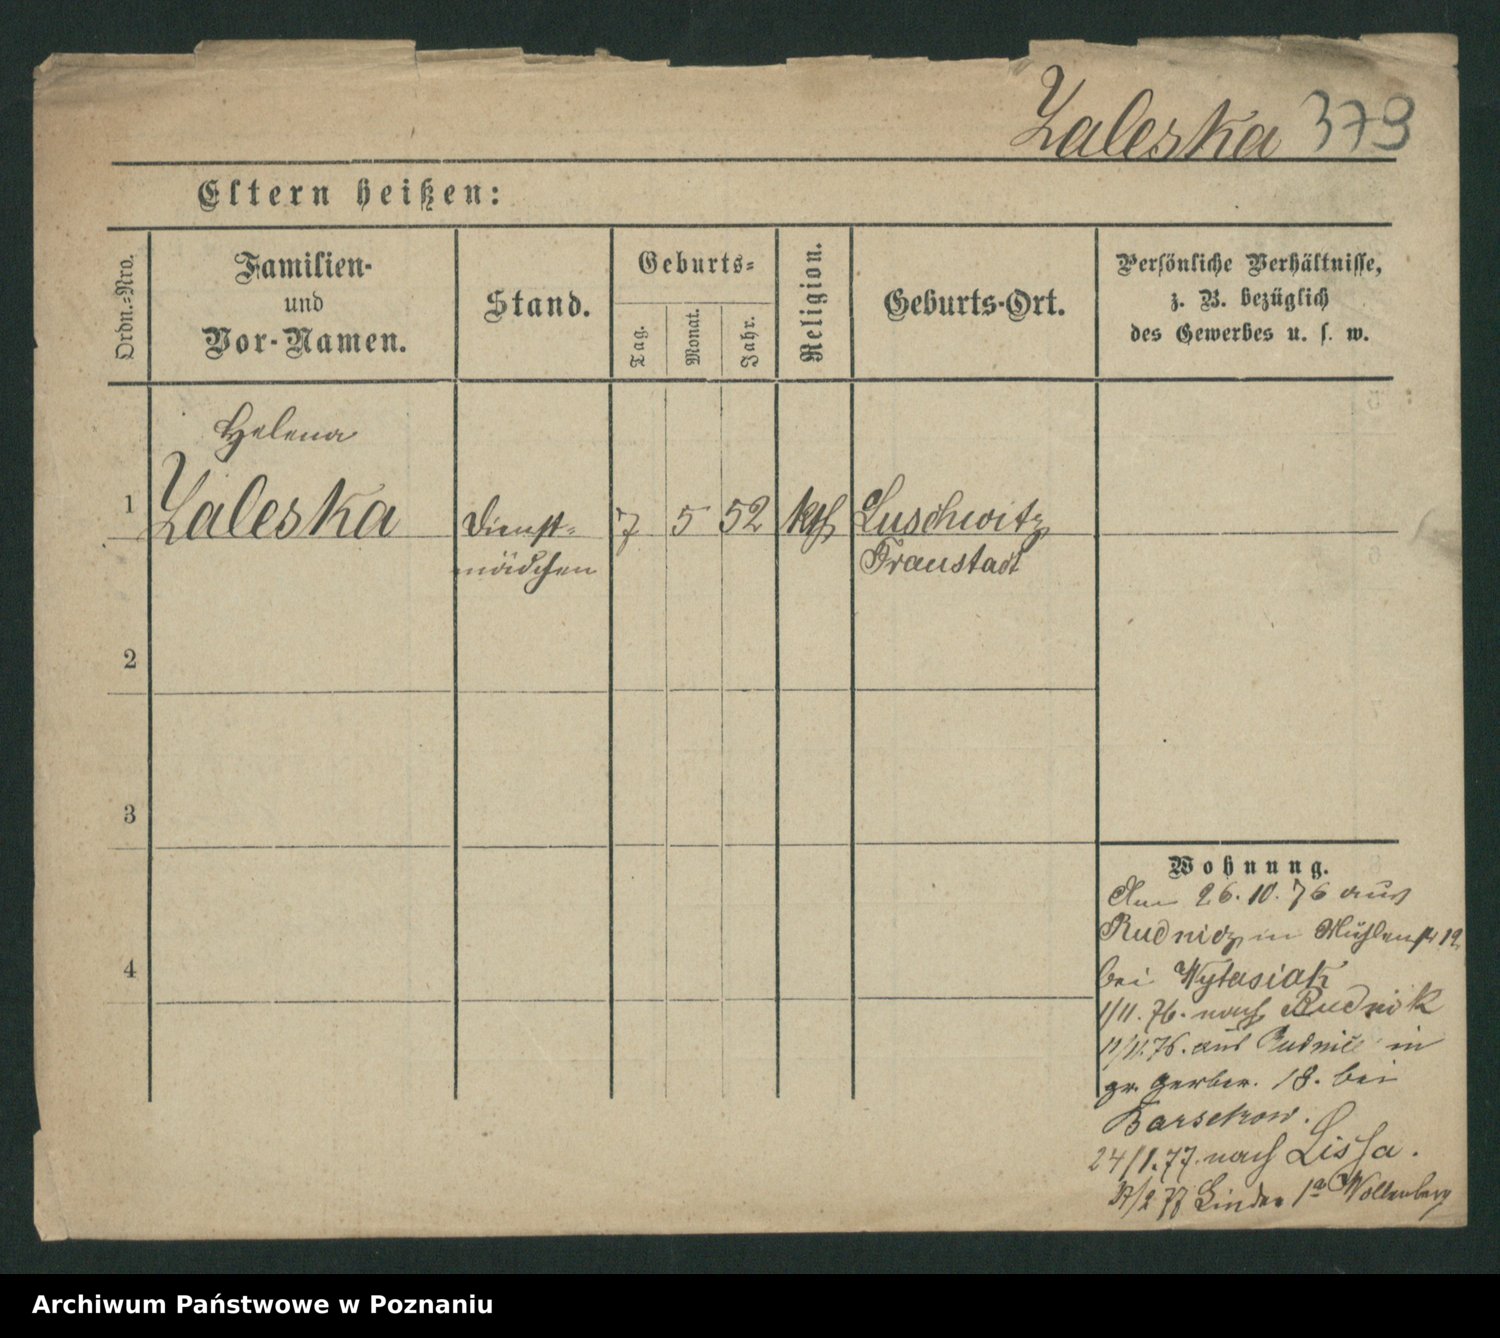 Zaleska 379
Eltern heißen:
Ordn.-Nro.
Familien-
und
Vor-Namen.
Stand.
Geburts-
Tag.
Monat.
Jahr.
Religion.
Geburts-Ort.
Persönliche Verhältnisse,
z. B. bezüglich
des Gewerbes u. s. w.
Helena
1 Zaleska Dienst- 7 5 52 kth Luschwitz
mädchen Fraustadt
2
3
4
Wohnung.
Am 26.10.76 aus
Rudnicz in Mühlenstr 19
bei Wytasiak
1/11.76. nach Rudnik
11/11.76. aus Rudnicz in
gr. Gerber. 18. bei
Barsekow.
24/1.77. nach Lissa.
Linden 1a Wollenberg
Archiwum Państwowe w Poznaniu